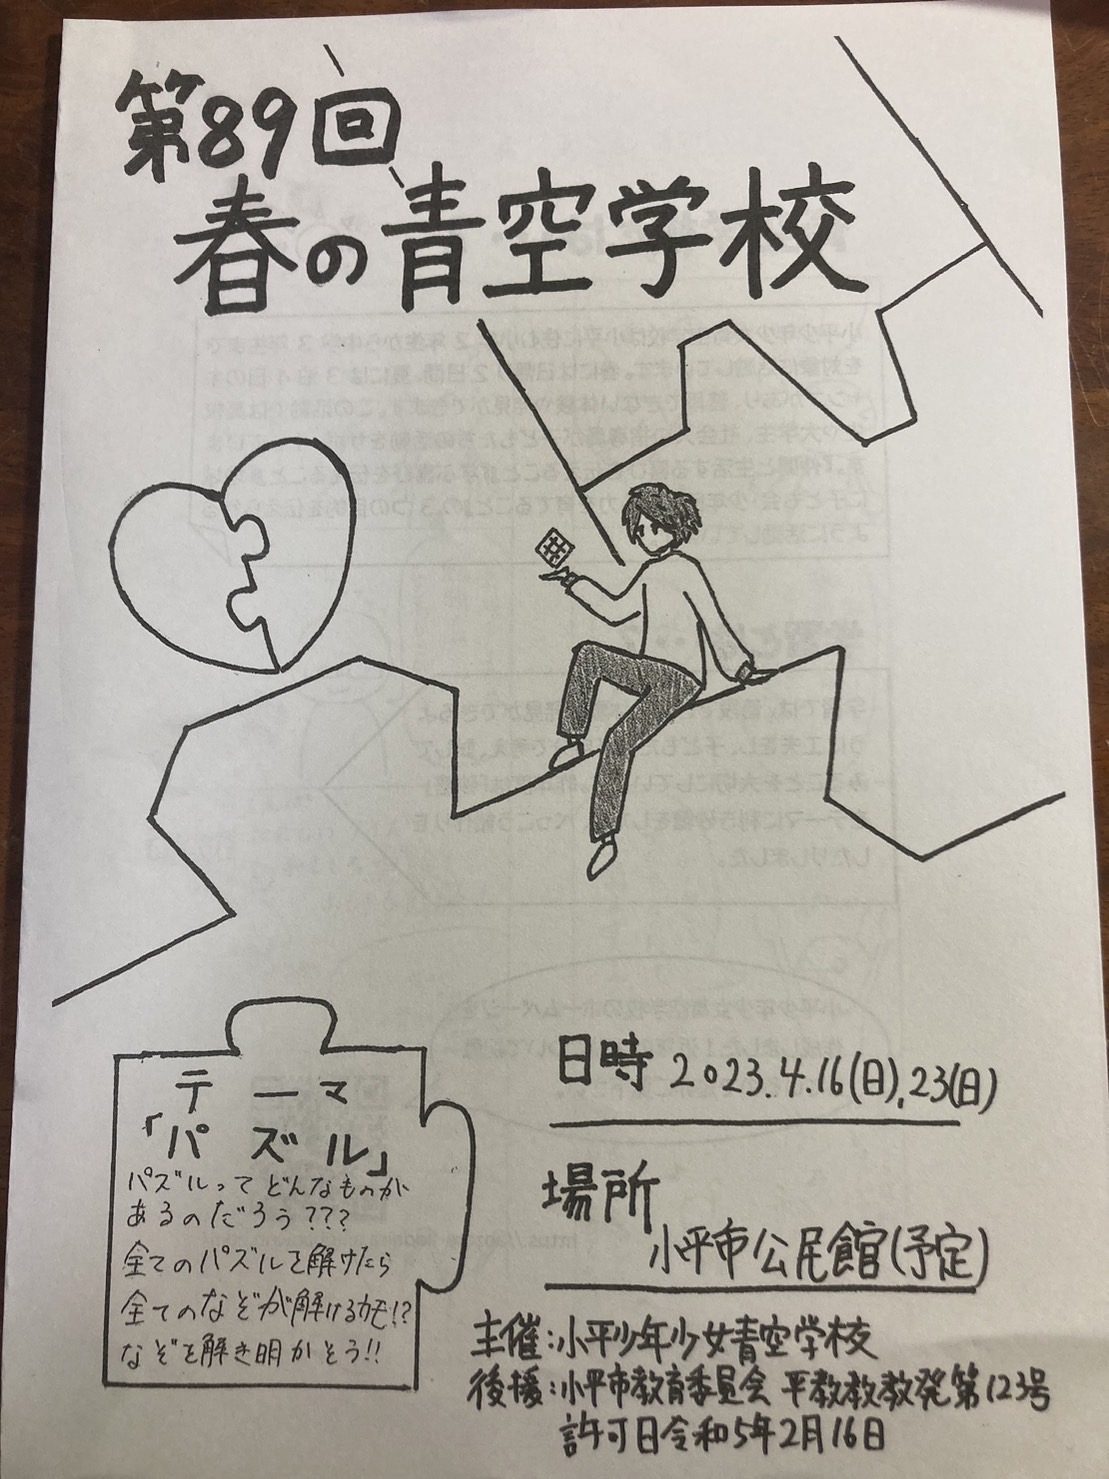 第89回
春の青空学校
テーマ
「パズル」
パズルってどんなものが
あるのだろう???
全てのパズルを解けたら
全てのなぞが解けるかも!?
なぞを解き明かそう!!
日時 2023.4.16(日),23(日)
場所
小平市公民館(予定)
主催:小平少年少女青空学校
後援:小平市教育委員会 平教教教発第123号
許可日令和5年2月16日